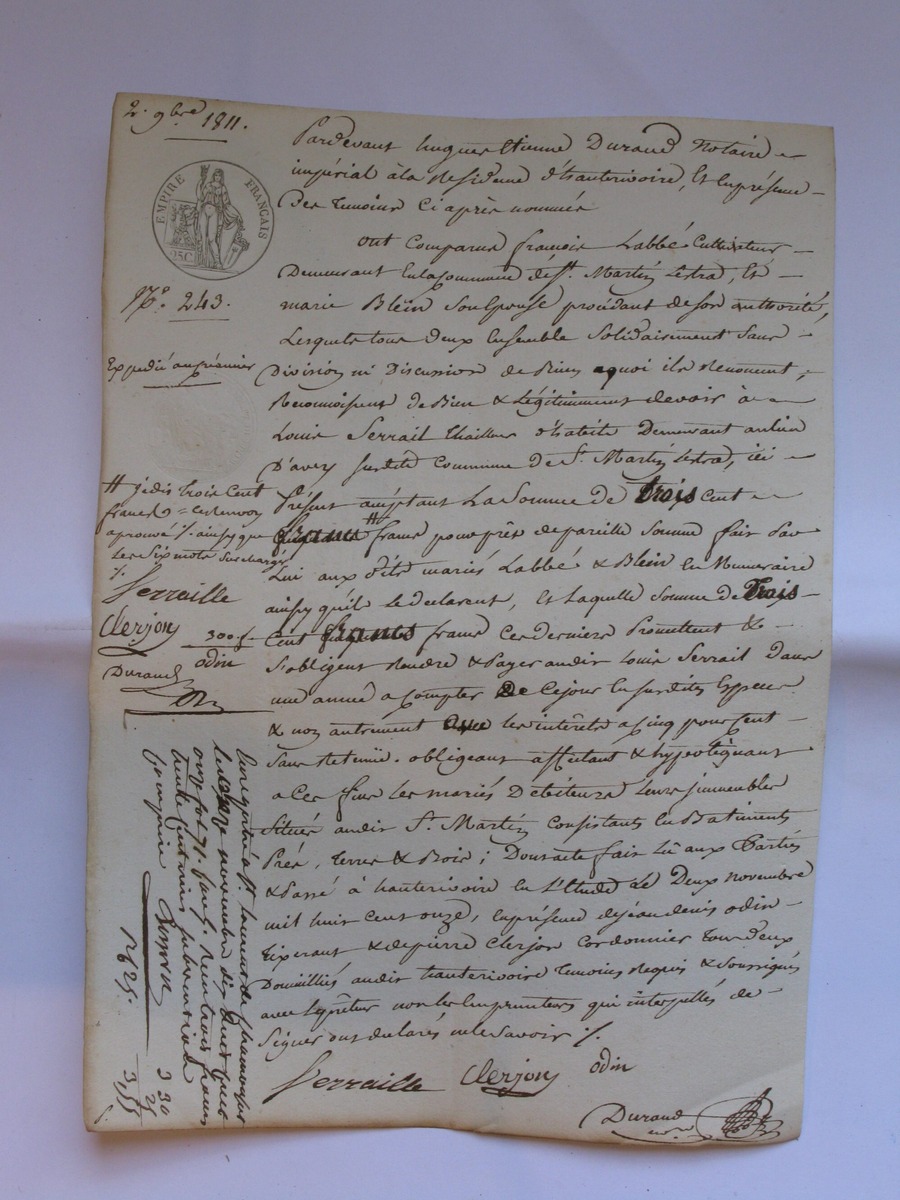 2. 9bre 1811.
EMPIRE FRANÇAIS
25C.
N.º 243.
Expedié au créancier
# je dis trois cent
francs = ce renvoy
aprouvé /. ainsy que
les six mots surchargés
/.
Serraille
Clerjon
300 f.
odin
Durand
Pardevant hugues Etienne Durand Notaire
impérial à la Residence d'hauterivoire, Et en présence
Des temoins Ci après nommés
ont Comparus françois Labbé Cultivateur
Demeurant En la Commune de St. Martin Lestra, Et
marie Bleïn Son Epouse procédant de son authorité,
Lesquels tous deux Ensemble Solidairement Sans
Division ni Discussion de Biens a quoi ils Renoncent,
Reconnoissent de Bien & Légitimement devoir à
Louis Serrail thailleur d'habits Demeurant au lieu
D'avey susdite Commune de St. Martin Lestra, ici
Présent acceptant La Somme de trois Cent
francs # francs pour prêt de pareille Somme fait par
Lui aux dits mariés Labbé & Bleïn En Numeraire
ainsy qu'il Le declarent, Et Laquelle Somme de trois
Cent francs francs Ces derniers Promettent &
S'obligent Rendre & Payer audit Louis Serrail Dans
une année a Compter de Ce jour En susdites Especes
& non autrement avec les intérêts a cinq pour Cent
Sans Retenüe. obligeant affectant & hypotéquant
a Ces fins Les mariés Débiteurs Leurs immeubles
Situés audit St. Martin Consistants En Batiments
Prés, Terres & Bois; Dont acte fait Lû aux Parties
& Passé à hauterivoire En L'Etude Le Deux novembre
mil huit Cent onze, En présence de jean denis odin
Tixerant, & de pierre Clerjon Cordonnier Tous deux
Domiciliés audit hauterivoire Temoins Requis & Soussignés
avec Le prêteur non les Emprunteurs qui interpellés de
Signer ont declarés ne le Savoir /.
Serraille Clerjon odin
Durand
Enregistré à St. Laurent de Chamousset
novembre dix huit cent
onze fol. 71. Reçu trois francs
trente centimes subvention
comprise
3 30
25
3,55